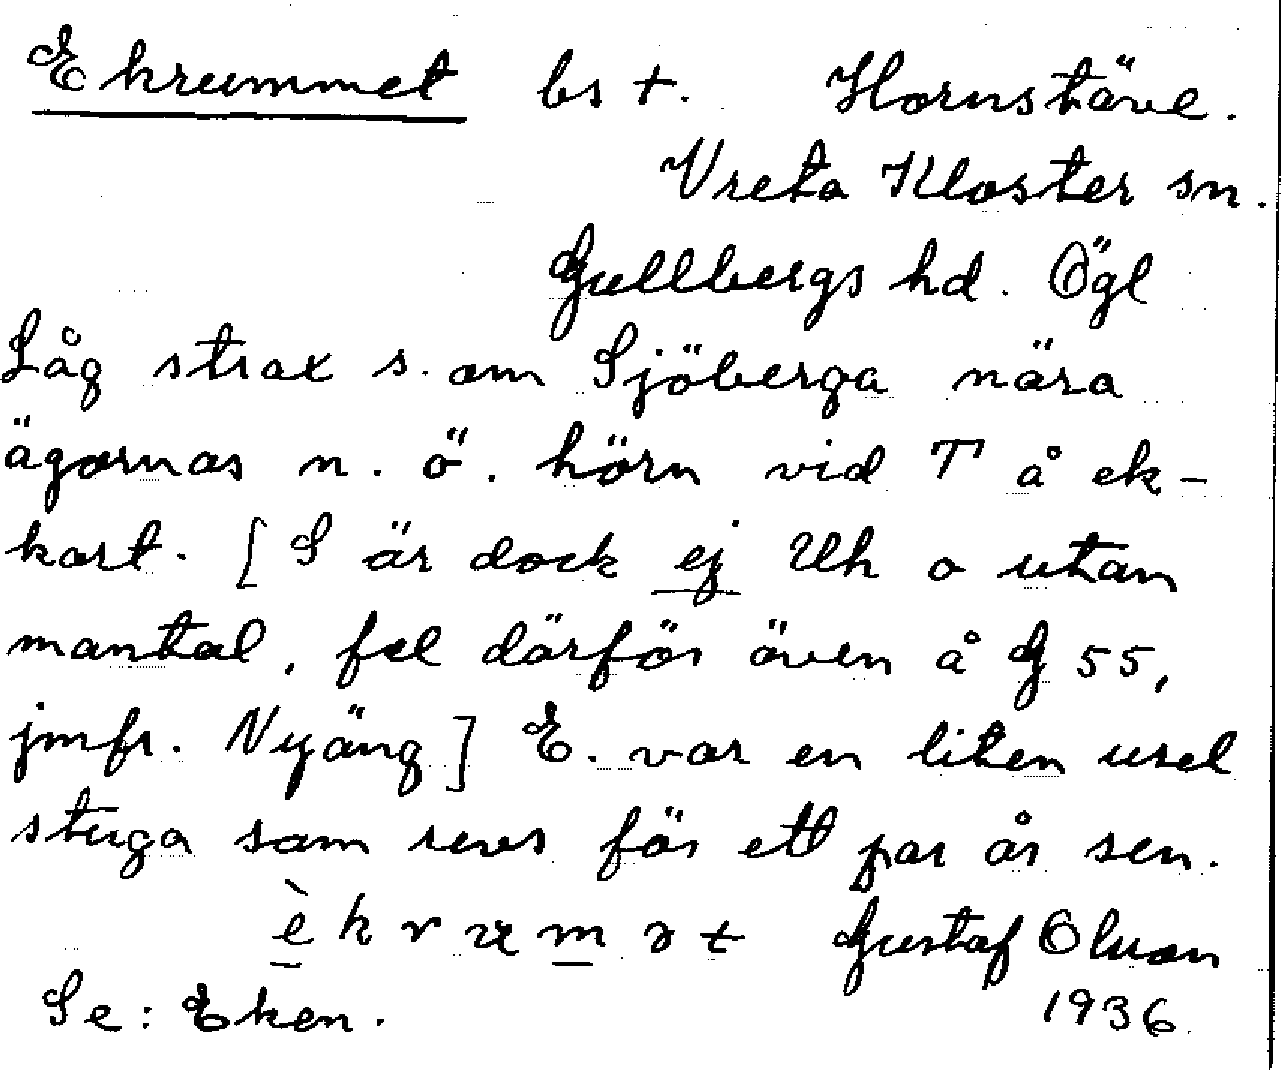 Ekrummet bs +. Hornstäve.
Vreta Kloster sn.
Gullbergs hd. Ögl
Låg strax s. om Sjöberga nära
ägornas n. ö. hörn vid T å ek-
kart. [S är dock ej Uh o utan
mantal, fel därför även å G 55,
jmfr. Nyäng] E. var en liten usel
stuga som revs för ett par år sen.
è k r u m ə t Gustaf Olsson
Se: Eken. 1936